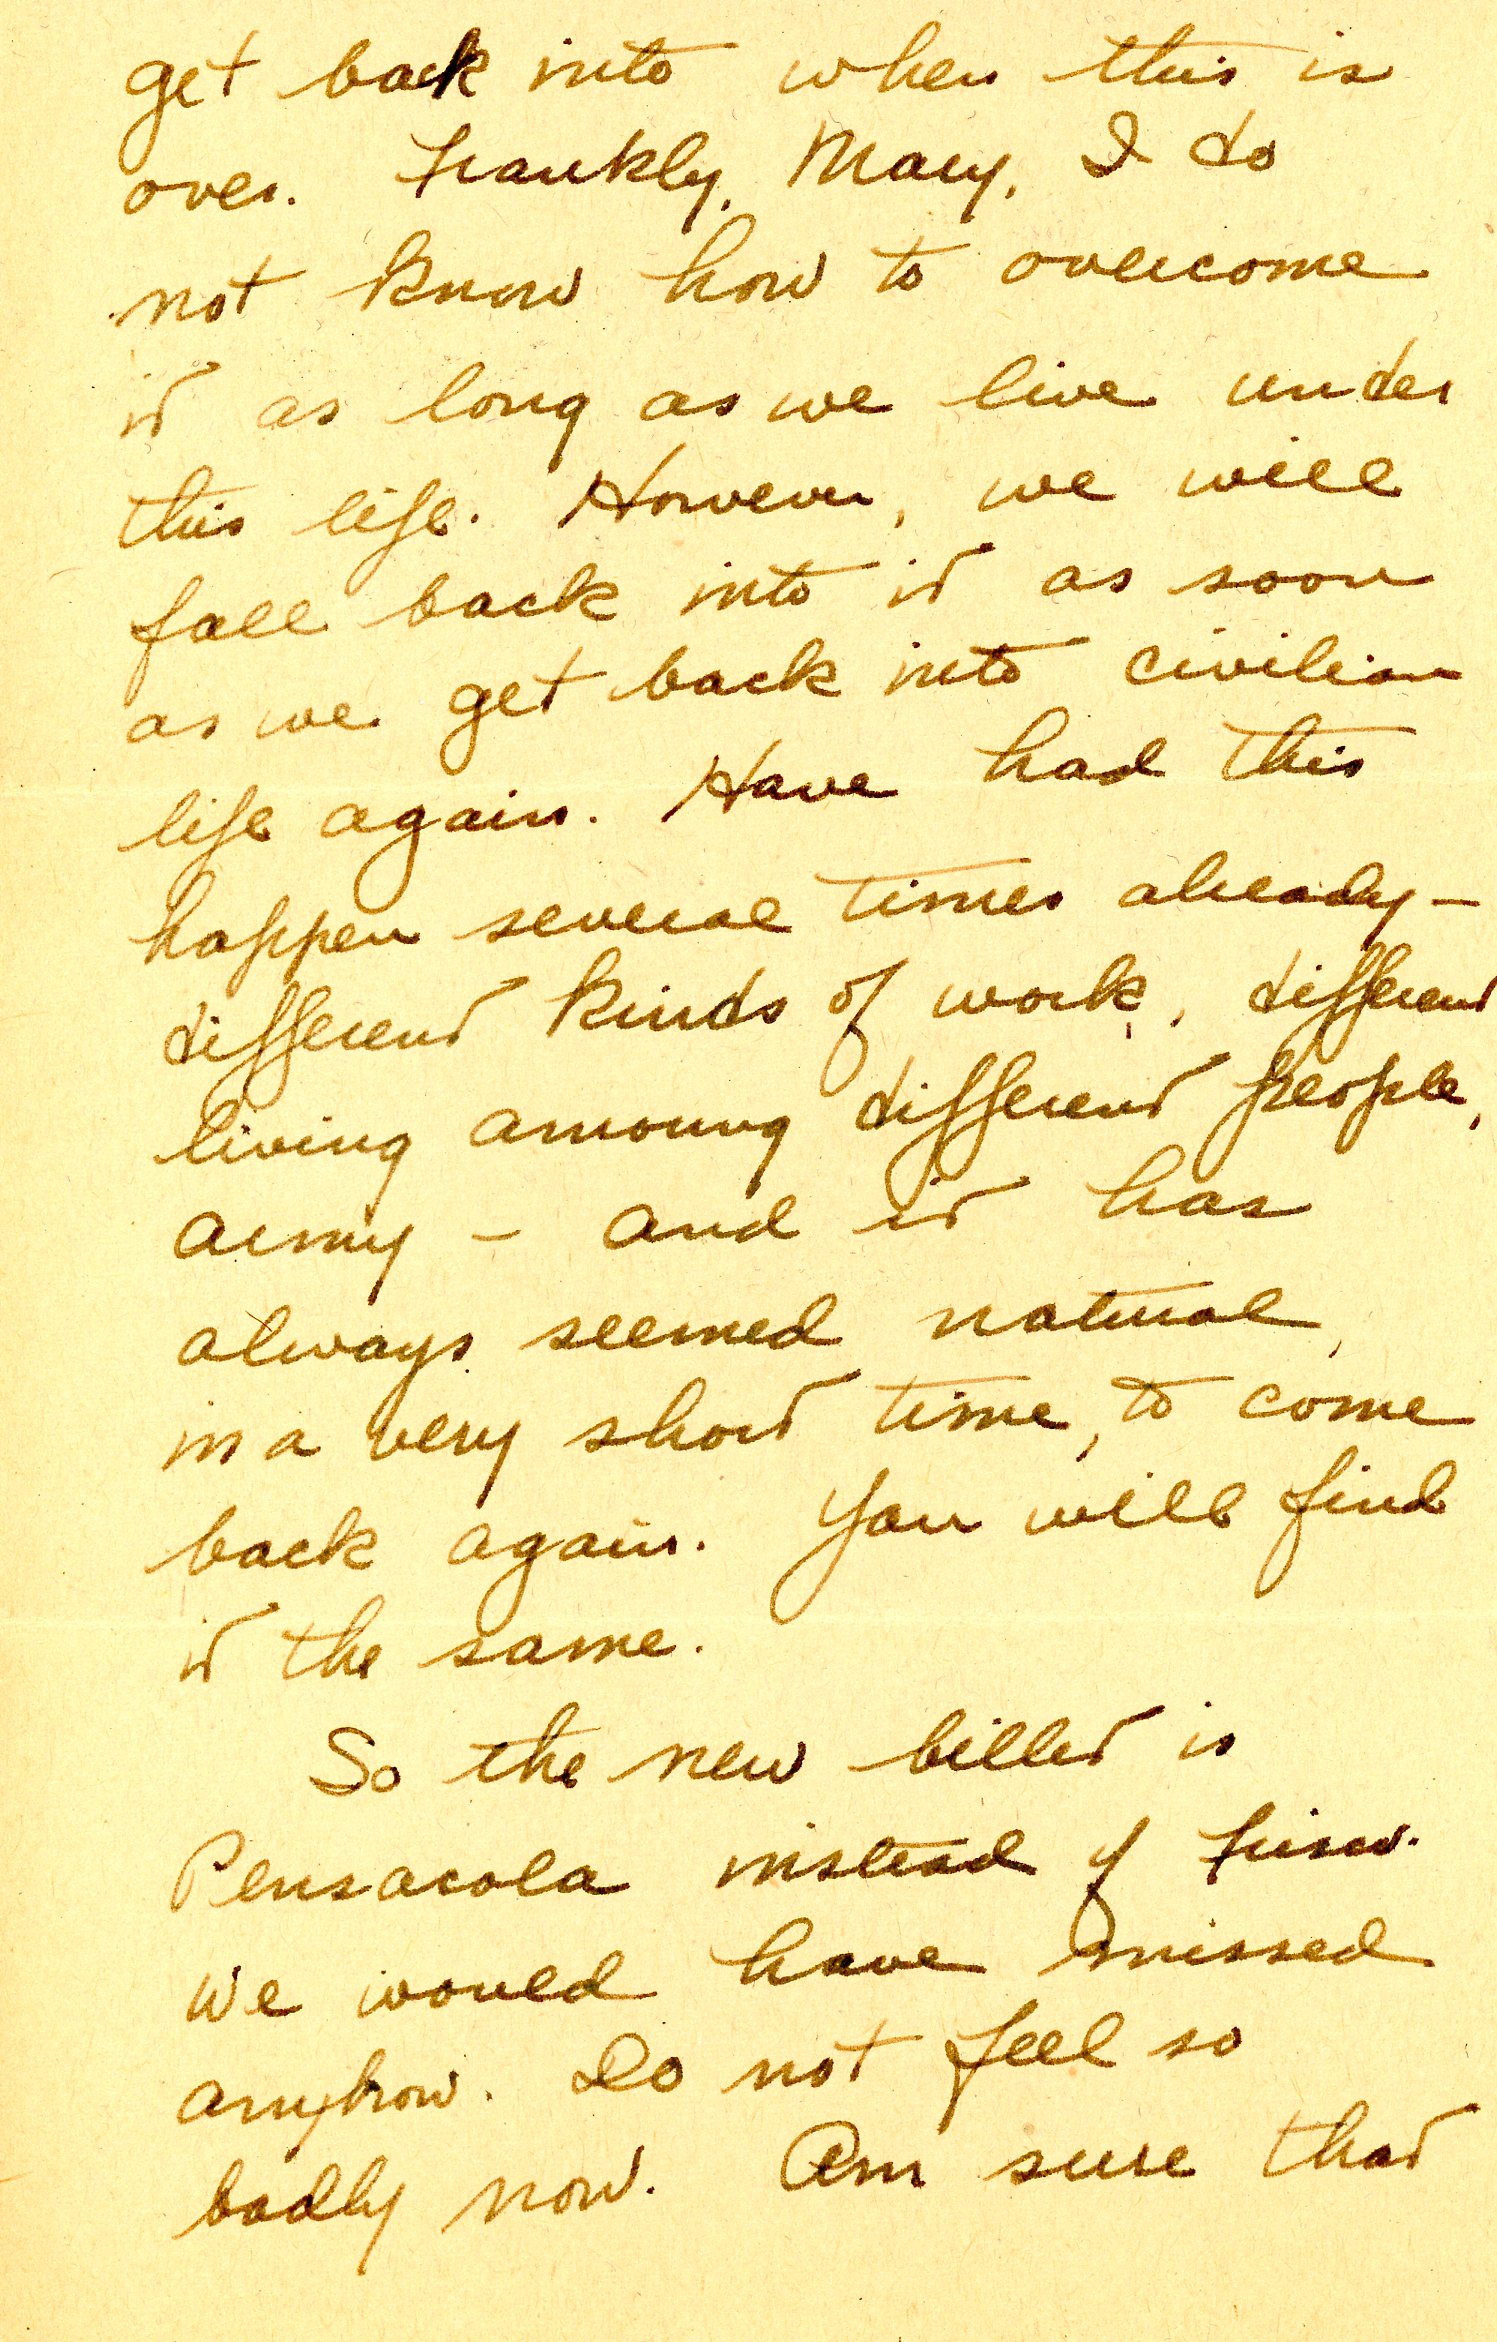 get back into when this is
over. Frankly, Mary, I do
not know how to overcome
it as long as we live under
this life. However, we will
fall back into it as soon
as we get back into civilian
life again. Have had this
happen several times already —
different kinds of work, different
living amoung different people,
army — and it has
always seemed natural,
in a very short time, to come
back again. You will find
it the same.
So the new billet is
Pensacola instead of Frisco.
We would have missed
anyhow. Do not feel so
badly now. Am sure that